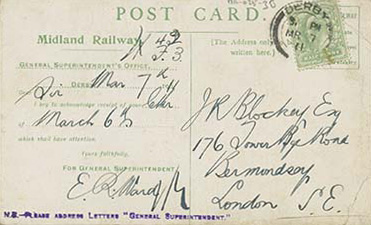 POST CARD.
DERBY
MR 7
11
Midland Railway.
K 42
F.3.
(The Address only
written here.)
GENERAL SUPERINTENDENT'S OFFICE,
Mar 7th
Sir
I beg to acknowledge receipt of your
March 6th
which shall have attention.
Yours faithfully,
FOR GENERAL SUPERINTENDENT
E. R. Ward
J R Blockey Esq
176 Tower Bge Road
Bermondsey
London S.E.
N.B.-PLEASE ADDRESS LETTERS "GENERAL SUPERINTENDENT."